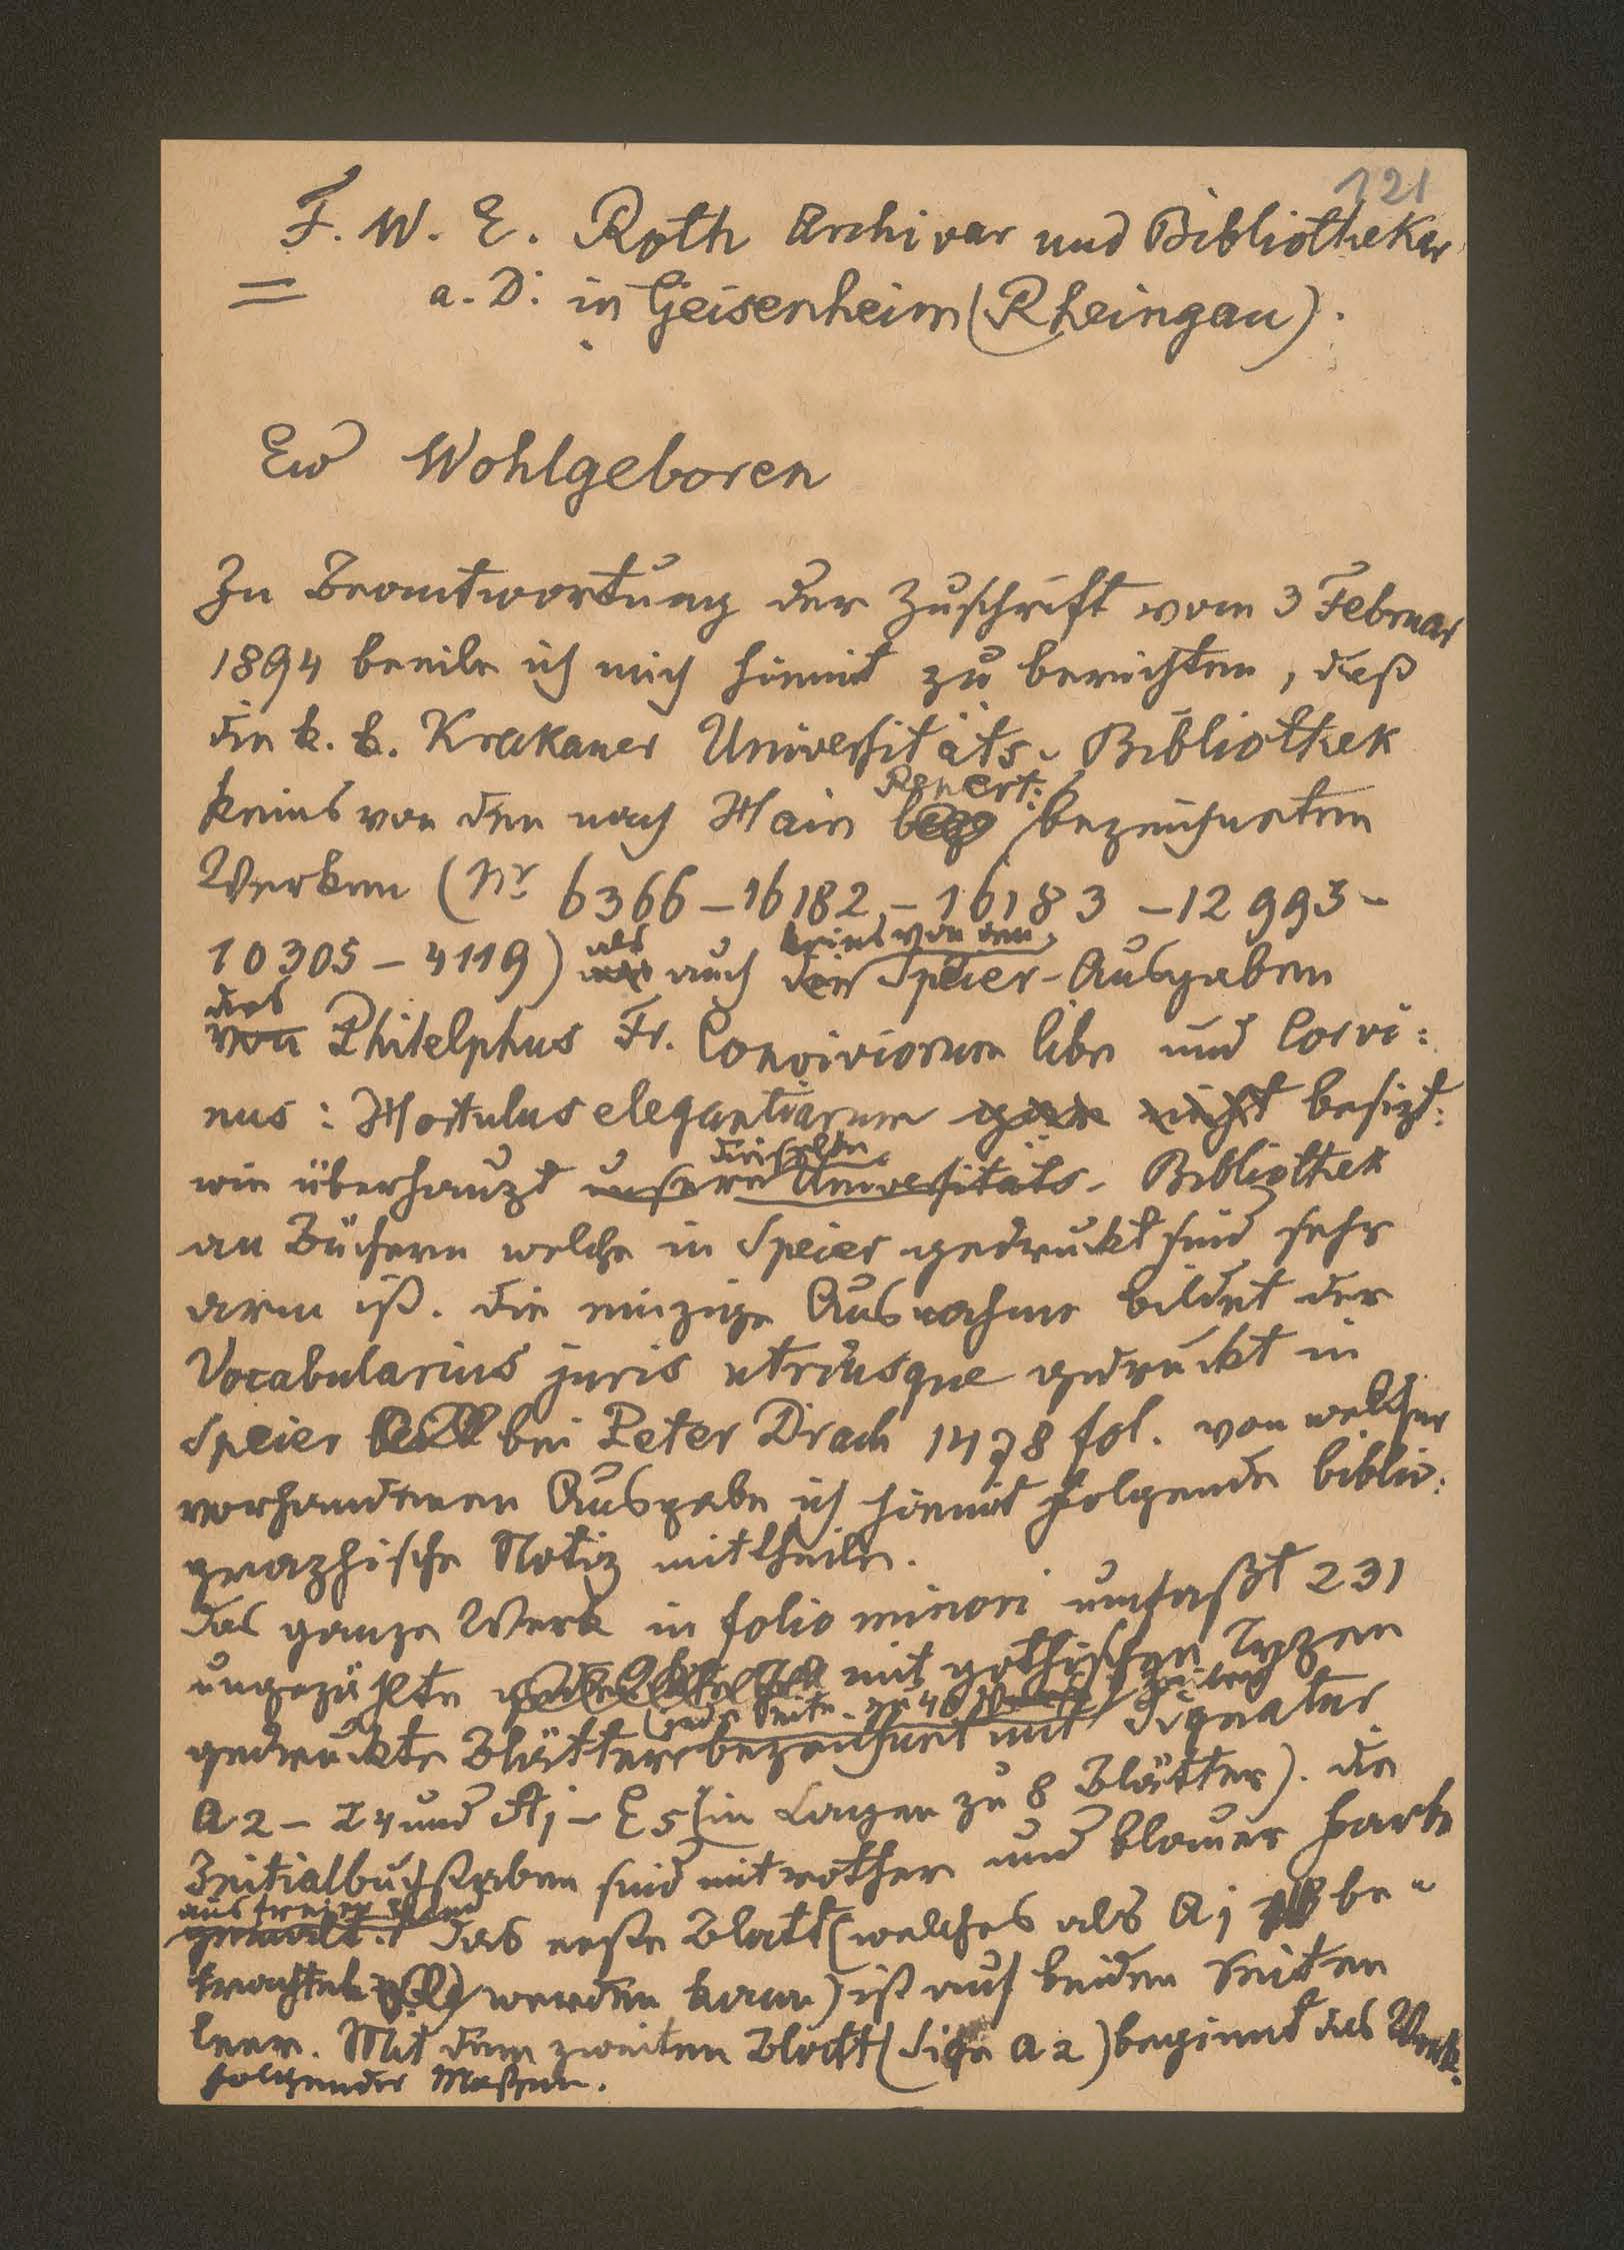 121
F. W. E. Roth Archivar und Bibliothekar
= a. D. in Geisenheim (Rheingau).
Ew Wohlgeboren
In Beantwortung der Zuschrift vom 3 Februar
1894 beeile ich mich hiemit zu berichten, daß
die k. k. Krakauer Universitäts-Bibliothek
keins von den nach Hain Repert: bezeichneten
Werken (Nr 6366 – 16182 – 16183 – 12993 –
10305 – 4119) als auch keins von den Speier-Ausgaben
des von Philelphus Fr. Conviviorum libr und Corvi:
nus: Hortulus elegantiarum gar nicht besizt:
wie überhaupt dieselbe unsere Universitäts-Bibliothek
an Büchern welche in Speier gedruckt sind sehr
arm ist. Die einzige Ausnahme bildet der
Vocabularius juris utriusque gedruckt in
Speier bei Peter Drach 1478 fol. von welcher
vorhandenen Ausgabe ich hiemit folgende biblio:
graphische Notiz mittheile.
Das ganze Werk in folio minori umfaßt 231
ungezählte mit gothischen Typen
(jede Seite zu 40 Zeilen)
gedruckte Blätter bezeichnet mit Signatur
a 2 – Z 4 und Aj – E 5 (in Lagen zu 8 Blätter). Die
Initialbuchstaben sind mit rother und blauer Farbe
aus freier Hand
gemalt. Das erste Blatt (welches als a j be-
trachtet werden kann) ist auf beiden Seiten
leer. Mit dem zweiten Blatt (Sign a 2) beginnt das Werk
folgender Maßen.